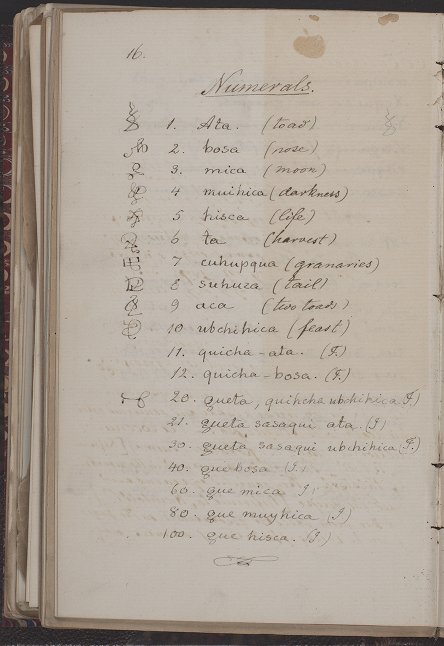 16.
Numerals.
1. Ata. (toad)
2. bosa (nose)
3. mica (moon)
4 muihica (darkness)
5 hisca (life)
6 ta (harvest)
7 cuhupqua (granaries)
8 suhuza (tail)
9 aca (two toads)
10 ubchihica (feast)
11. quicha-ata. (I.)
12. quicha-bosa. (I.)
20. gueta, quihcha ubchihica (I.)
21. gueta sasaqui ata. (I)
30. gueta sasaqui ubchihica (I.)
40. gue bosa (I.)
60. gue mica I)
80. gue muyhica (I)
100. gue hisca. (I)